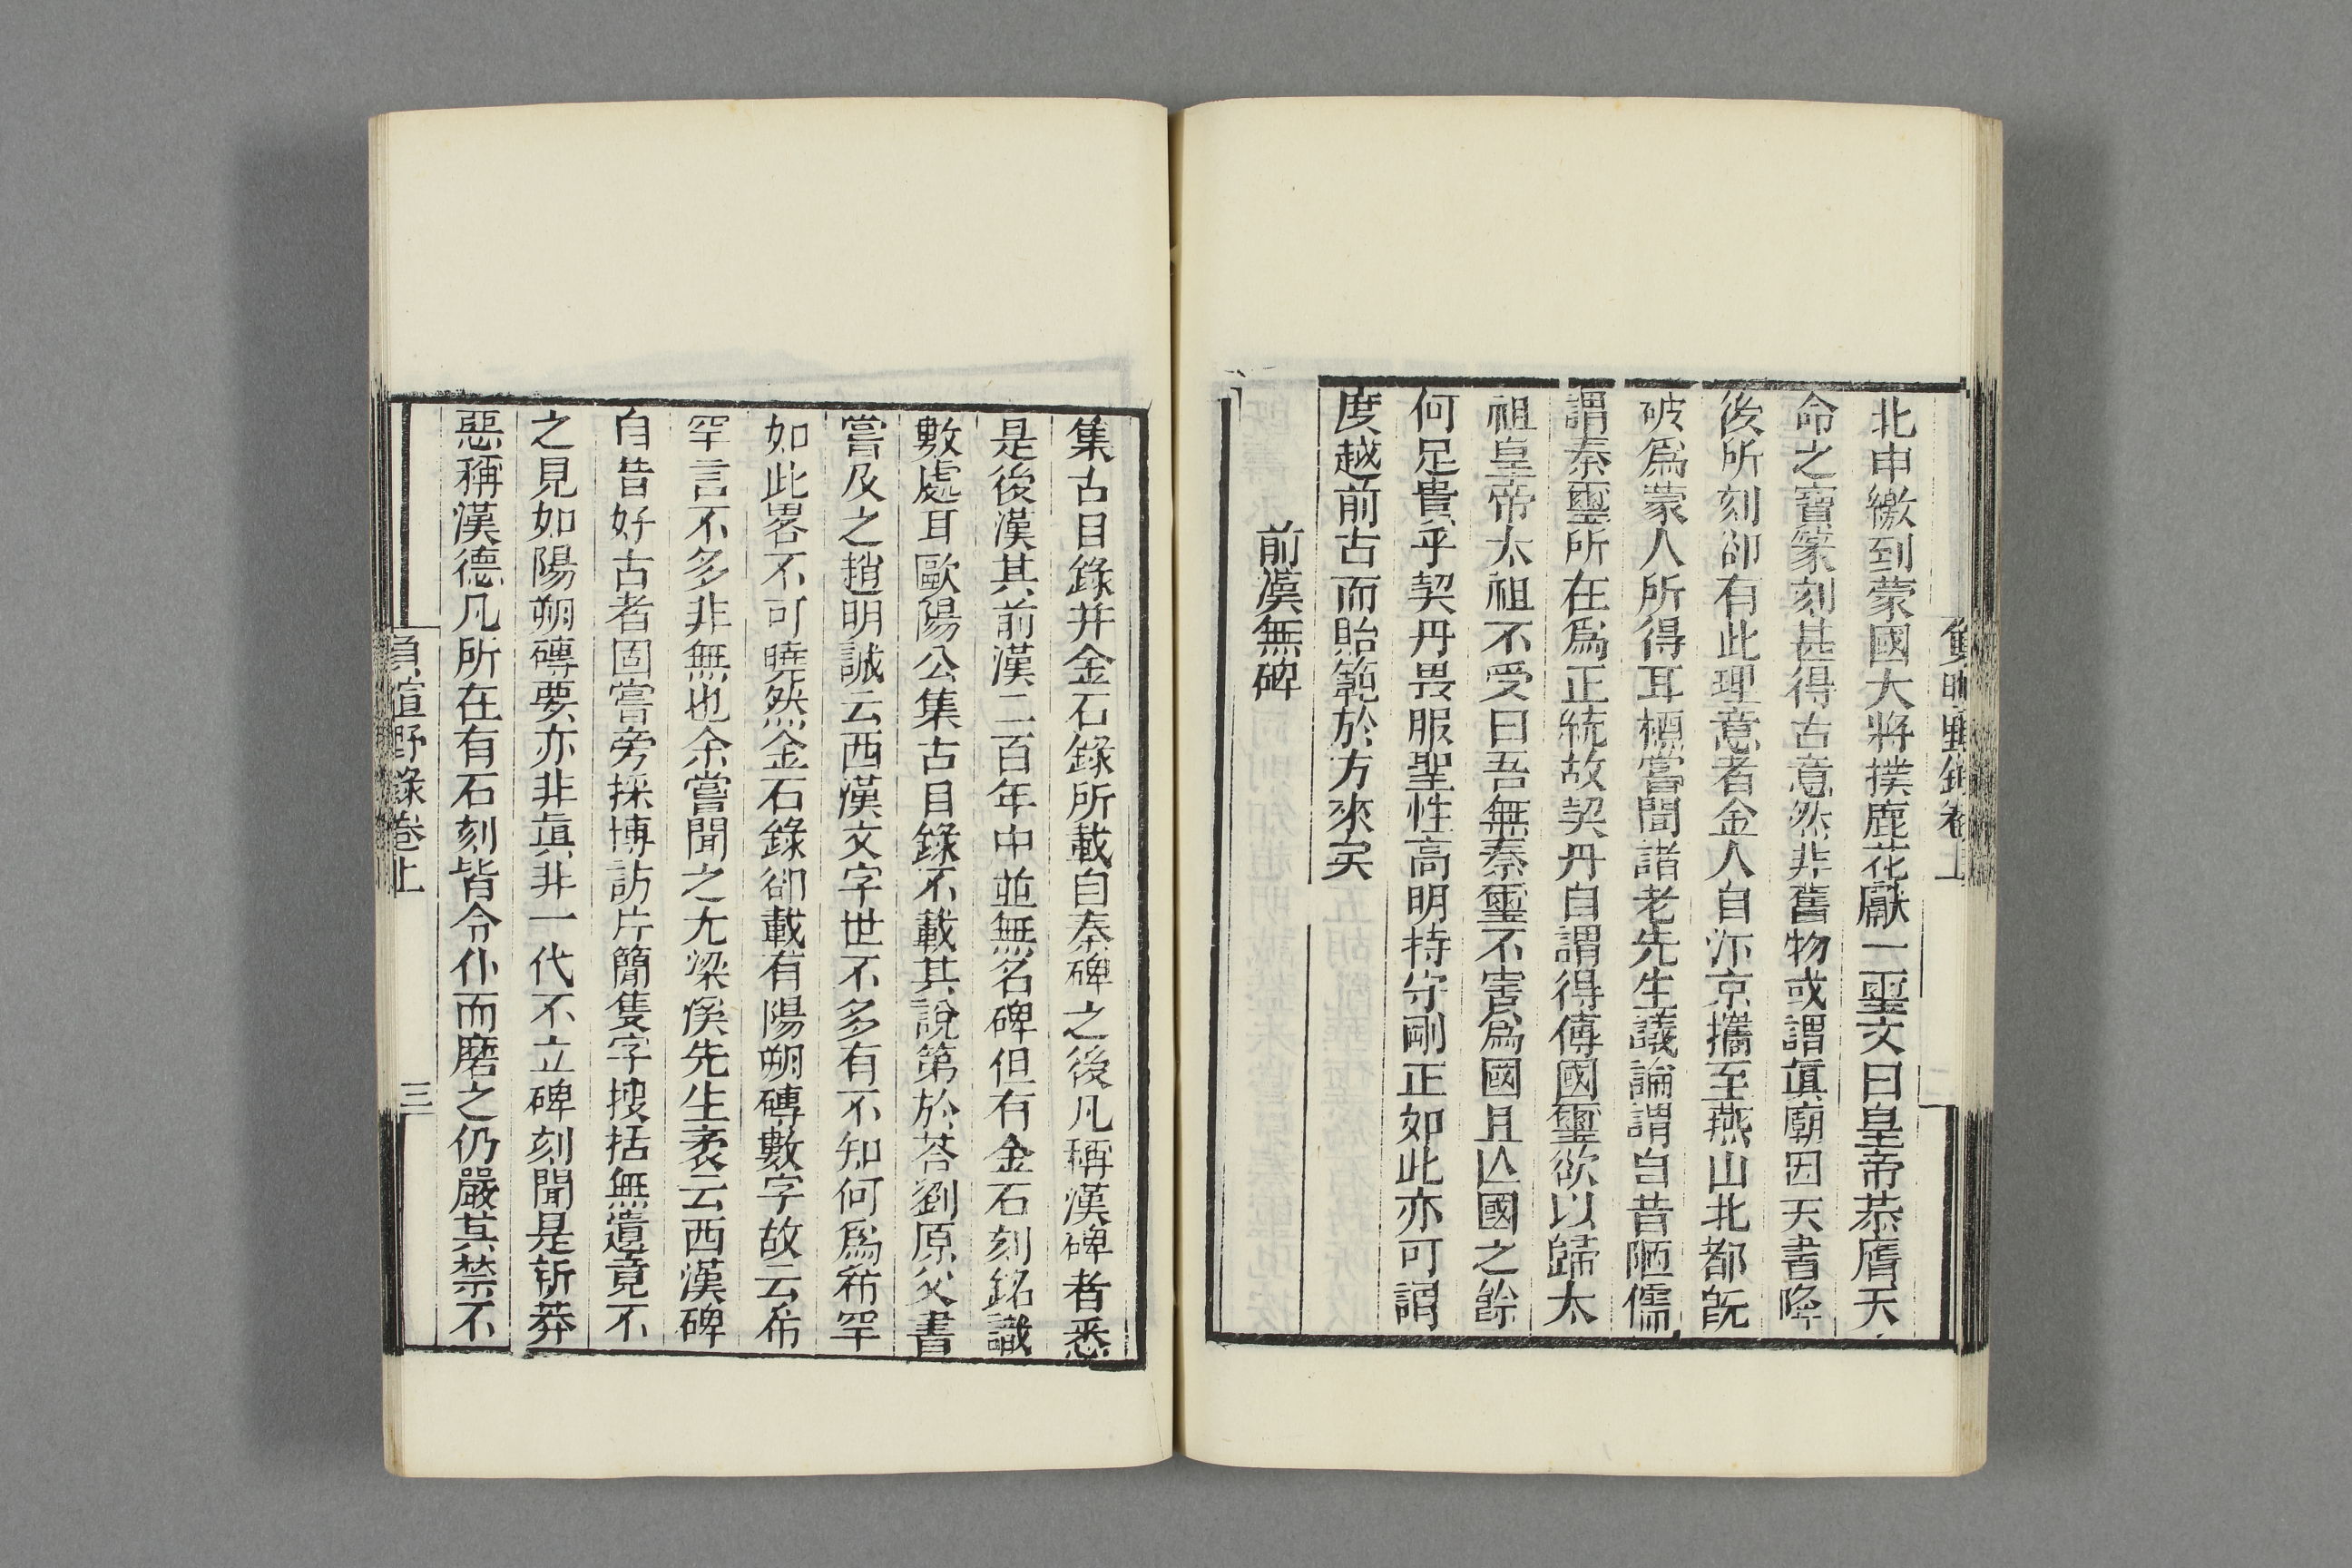 負暄野錄卷上
二
北申繳到蒙國大將撲鹿花獻一璽文曰皇帝恭膺天
命之寶篆刻甚得古意然非舊物或謂眞廟因天書降
後所刻卻有此理意者金人自汴京攜至燕山北都旣
破爲蒙人所得耳槱嘗聞諸老先生議論謂自昔陋儒
謂秦璽所在爲正統故契丹自謂得傳國璽欲以歸太
祖皇帝太祖不受曰吾無秦璽不害爲國且亾國之餘
何足貴乎契丹畏服聖性高明持守剛正如此亦可謂
度越前古而貽範於方來矣
前漢無碑
集古目錄并金石錄所載自秦碑之後凡稱漢碑者悉
是後漢其前漢二百年中並無名碑但有金石刻銘識
數處耳歐陽公集古目錄不載其說第於荅劉原父書
嘗及之趙明誠云西漢文字世不多有不知何爲希罕
如此畧不可曉然金石錄卻載有陽朔磚數字故云希
罕言不多非無也余嘗聞之尢梁溪先生袤云西漢碑
自昔好古者固嘗旁採博訪片簡隻字搜括無遺竟不
之見如陽朔磚要亦非眞非一代不立碑刻聞是新莽
惡稱漢德凡所在有石刻皆令仆而磨之仍嚴其禁不
負暄野錄卷上
三